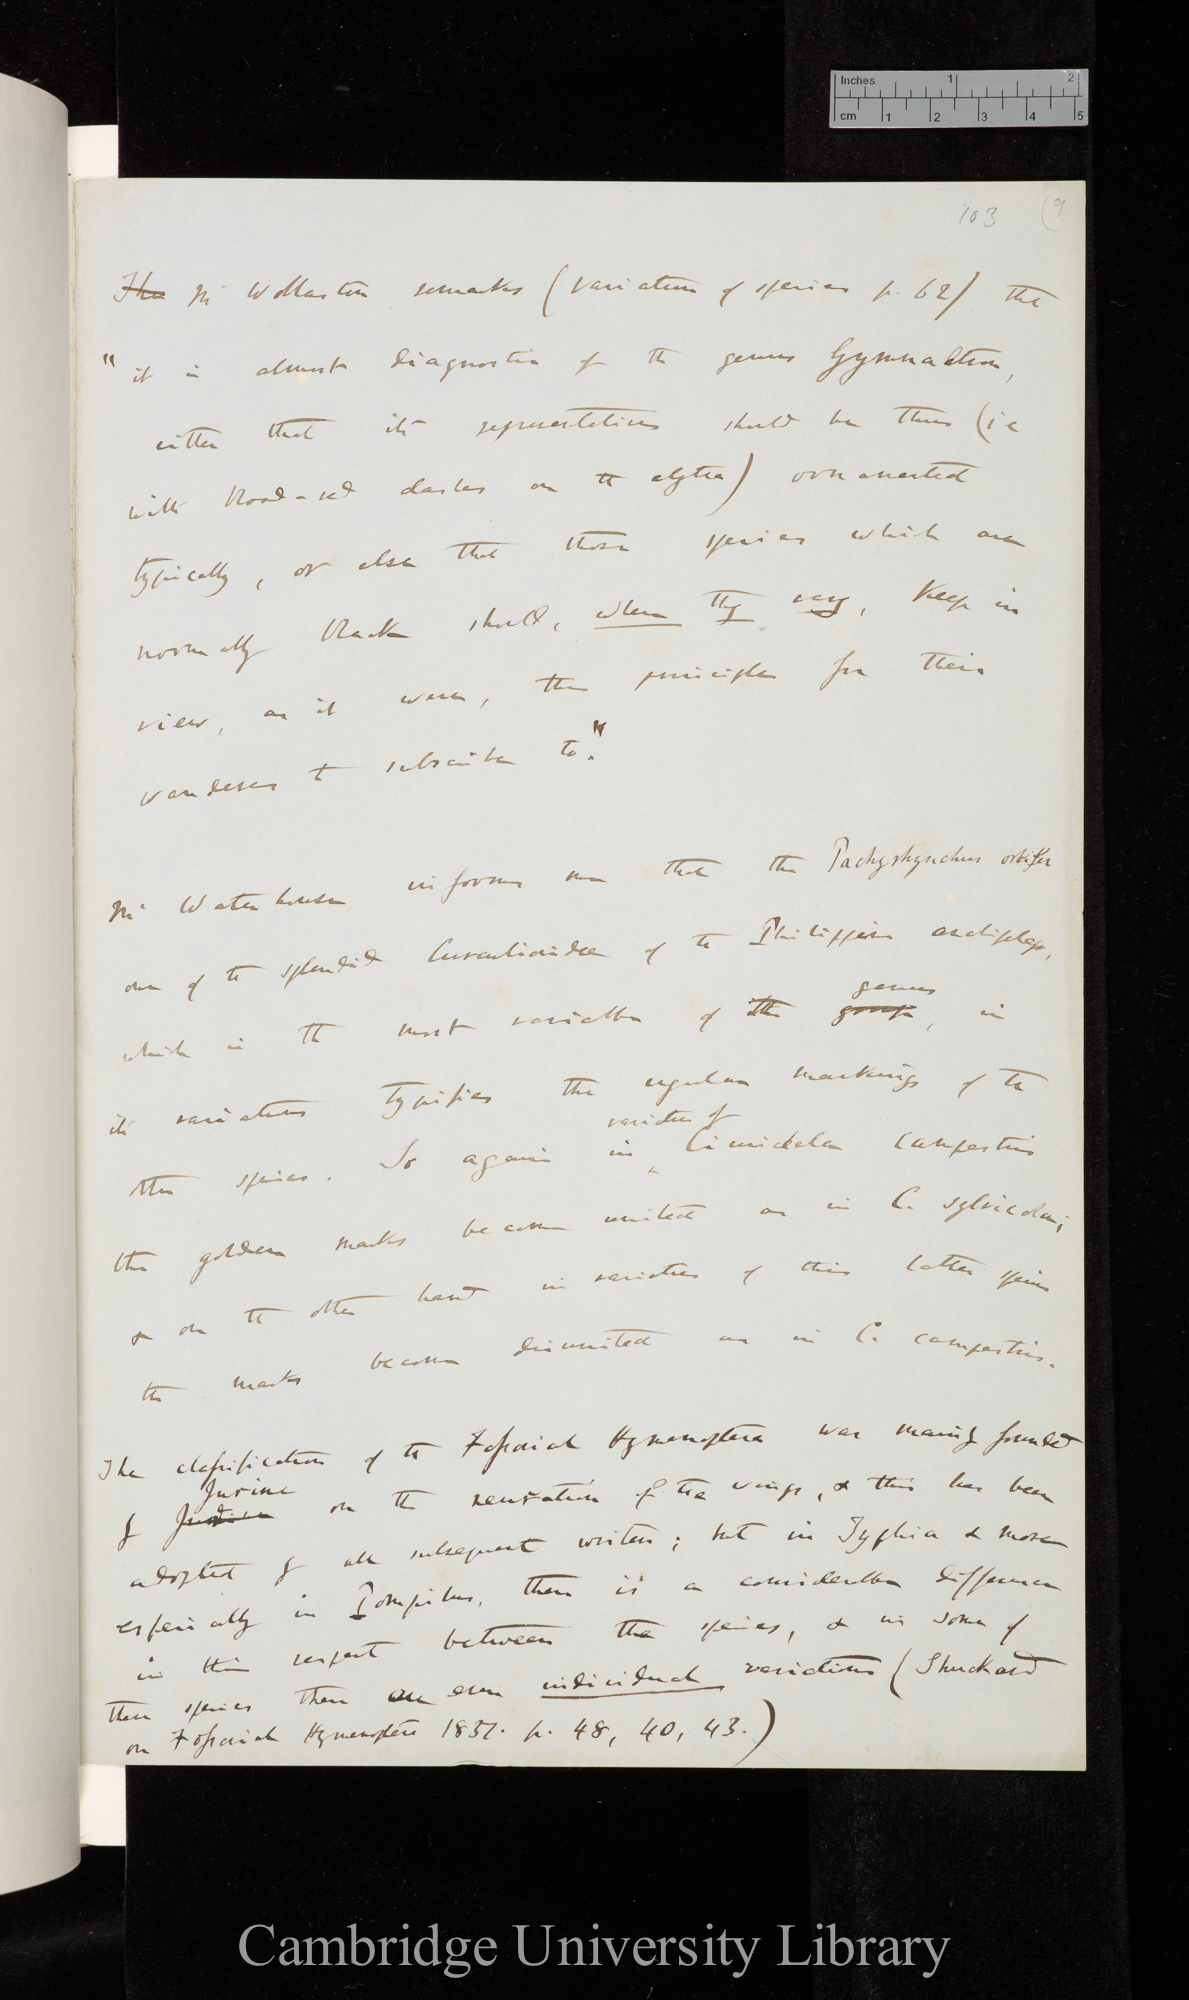 Inches 1 2
cm 1 2 3 4 5
103 (9
The Mr Wollaston remarks (variation of species p. 62) that
"it is almost diagnostic of the genus Gymnaetron,
either that its representatives should be thus (ie
with blood-red dashes on the elytra) ornamented
typically, or else that those species which are
normally black should, when they vary, keep in
view, as it were, this principle for their
wanderers to subscribe to."
Mr Waterhouse informs me that the Pachyrhynchus orbifer
one of the splendid Curculionidae of the Philippine archipelago,
which is the most variable of the group, in
genus
its variations typifies the regular markings of the
other species. So again in Cicindela campestris
varieties of
the golden marks become united as in C. sylvicola;
& on the other hand in varieties of this latter species
the marks become disunited as in C. campestris.
The classification of the Fossorial Hymenoptera was mainly founded
Jurine
by on the neuration of the wings, & this has been
adopted by all subsequent writers; but in Typhia & more
especially in Pompilus, there is a considerable difference
in this respect between the species, & in some of
these species there are even individual variations (Shuckard
on Fossorial Hymenoptera 1837. p. 48, 40, 43.)
Cambridge University Library